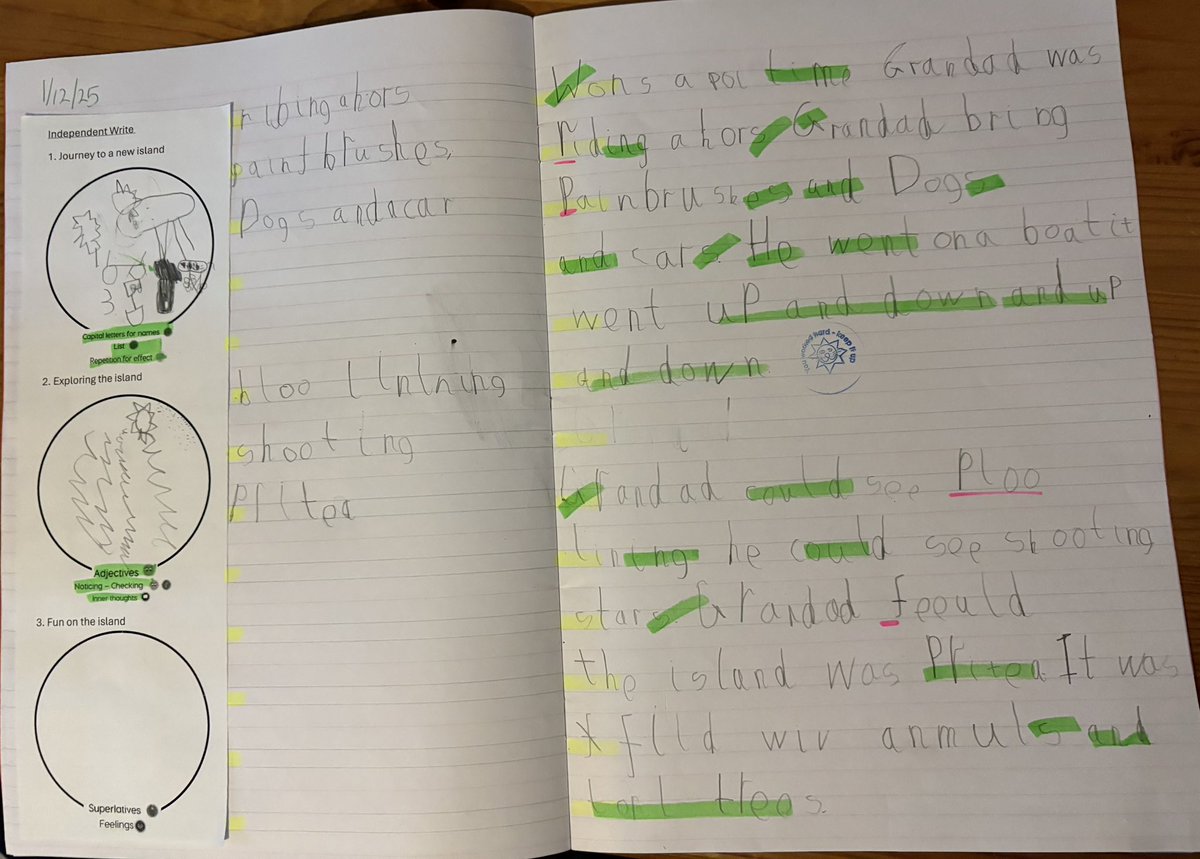 1/12/25
Independent Write
1. Journey to a new island
Capital letters for names
List
Repetition for effect
2. Exploring the island
Adjectives
Noticing – Checking
Inner thoughts
3. Fun on the island
Superlatives
Feelings
ribing ahors
paint brushes,
Dogs andacar
bloo
shooting
Pritea
Wons a pol time Grandad was
riding a hors. Grandad bring
Painbrushes and Dogs
and cars. He went ona boat it
went up and down and up
and down
you worked hard - keep it up
Grandad could see Ploo
lining he could see shooting
stars. Grandad
the island was Pritea. It was
filld wiv anmuls and
torl trees.